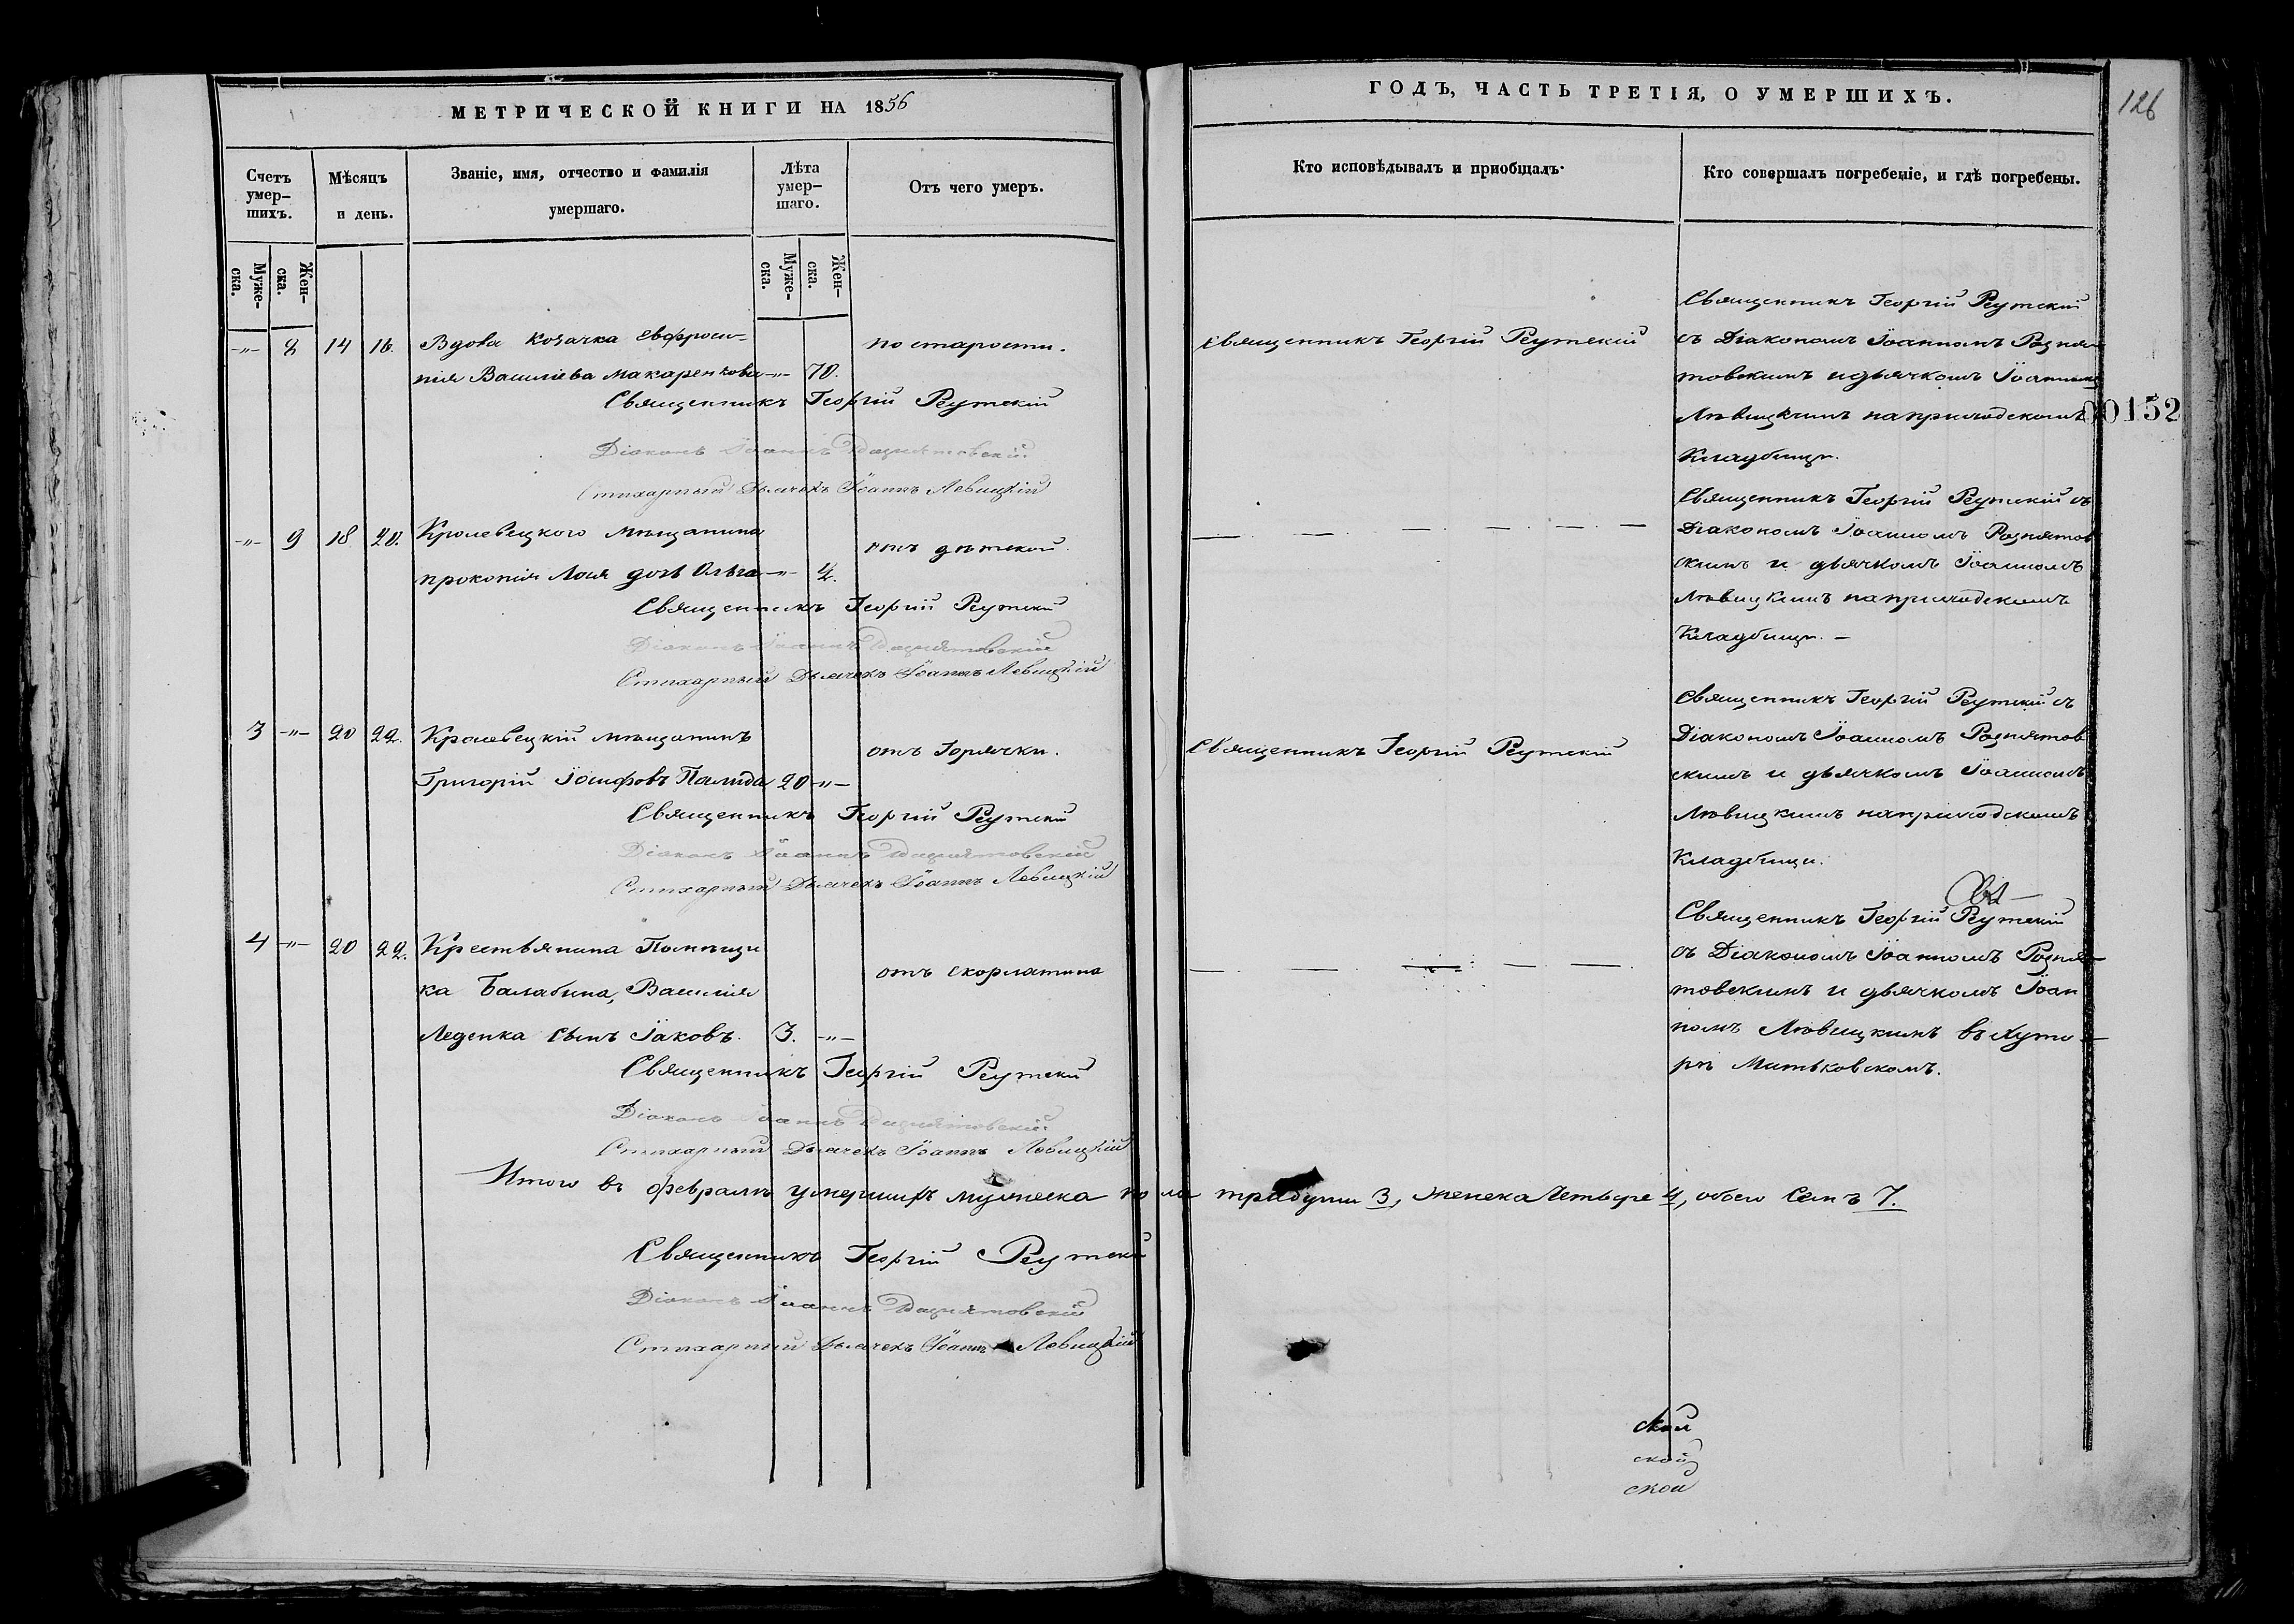 МЕТРИЧЕСКОЙ КНИГИ НА 1856
ГОДЪ, ЧАСТЬ ТРЕТІЯ, О УМЕРШИХЪ.
126
Счетъ умер-шихъ.
Мѣсяцъ и день.
Званіе, имя, отчество и фамилія умершаго.
Лѣта умер-шаго.
Отъ чего умеръ.
Кто исповѣдывалъ и пріобщалъ.
Кто совершалъ погребеніе, и гдѣ погребены.
Муже-ска.
Жен-ска.
Муже-ска.
Жен-ска.
-"- 8 14 16. Вдова козачка Евфроси-
нія Василіева Макаренкова -"- 70.
по старости.
Священникъ Георгій Реутскій
Діаконъ Іоаннъ Рознятовскій
Стихарный Дьячекъ Іоаннъ Левицкій
Священникъ Георгій Реутскій
Священникъ Георгій Реутскій
съ Діакономъ Іоанномъ Розня-
товскимъ и дьячкомъ Іоанномъ
Лѣвицкимъ на приходскомъ
Кладбищѣ.
00152
-"- 9 18 20. Кролевецкого мѣщанина
Прокопія Лоя дочь Ольга -"- 4.
отъ дѣтской.
Священникъ Георгій Реутскій
Діаконъ Іоаннъ Рознятовскій
Стихарный Дьячекъ Іоаннъ Левицкій
Священникъ Георгій Реутскій съ
Діакономъ Іоанномъ Рознятов
скимъ и дьячкомъ Іоанномъ
Лѣвицкимъ на приходскомъ
Кладбищѣ. —
3 -"- 20 22. Кролевецкій мѣщанинъ
Григорій Іосифовъ 20 -"-
отъ Горячки.
Священникъ Георгій Реутскій
Діаконъ Іоаннъ Рознятовскій
Стихарный Дьячекъ Іоаннъ Левицкій
Священникъ Георгій Реутскій
Священникъ Георгій Реутскій съ
Діакономъ Іоанномъ Рознятов
скимъ и дьячкомъ Іоанномъ
Лѣвицкимъ на приходскомъ
Кладбищи.
4 -"- 20 22. Крестьянина Помѣщи
ка Балабина, Василія
Леденка сынъ Іаковъ. 3. -"-
отъ скорлатина
Священникъ Георгій Реутскій
Діаконъ Іоаннъ Рознятовскій
Стихарный Дьячекъ Іоаннъ Левицкій
Священникъ Георгій Реутскій
съ Діакономъ Іоанномъ Розня-
товскимъ и дьячкомъ Іоан
номъ Лѣвицкимъ въ Хуто-
рѣ Митьковскомъ.
Итого въ февралѣ умершихъ мужеска пола три души 3, женска Четыре 4, обоего Семъ 7.
Священникъ Георгій Реутскій
Діаконъ Іоаннъ Рознятовскій
Стихарный Дьячекъ Іоаннъ Левицкій
ской
ской
ской